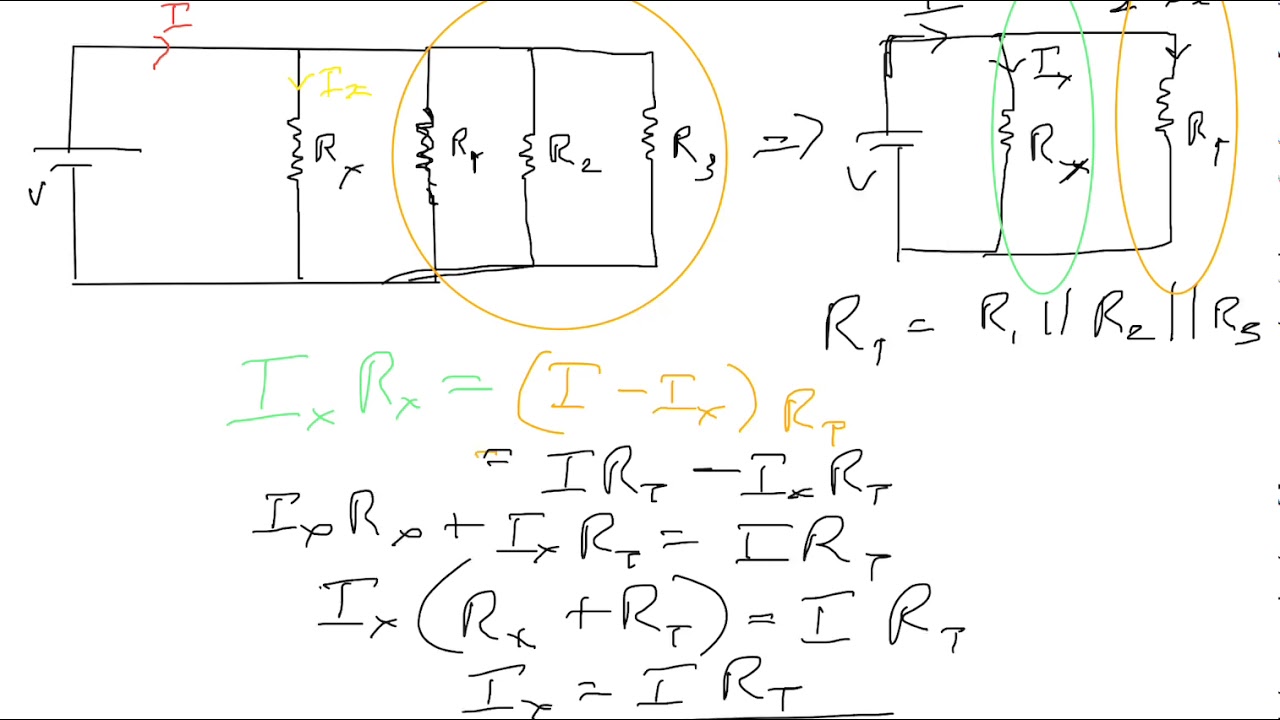 I
I
I_x
I_x
V
R_x
R_1
R_2
R_3
=>
V
R_x
R_T
R_T = R_1 || R_2 || R_3
I_x R_x = (I - I_x) R_T
= I R_T - I_x R_T
I_x R_x + I_x R_T = I R_T
I_x (R_x + R_T) = I R_T
I_x = I R_T